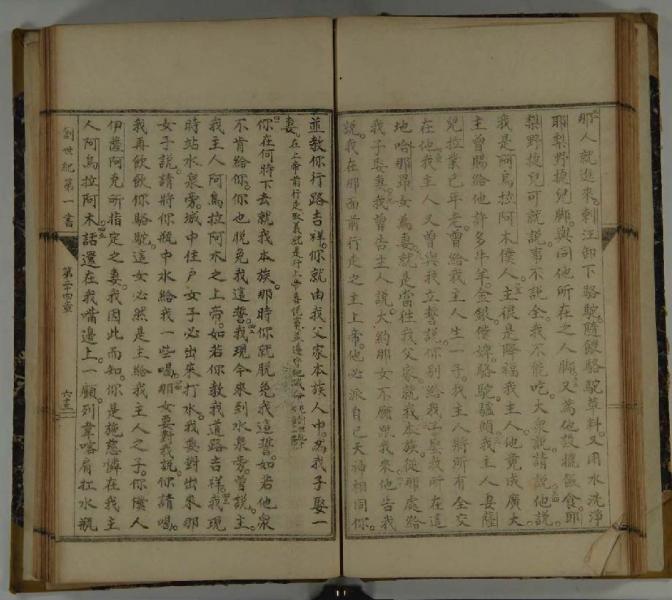 那人就進來。剌汪卸下駱駝隨餵駱駝草料。又用水洗淨
耶梨野捜兒腳與同他所在之人腳。又為他設擺飯食。耶
梨野捜兒可就說。事不說全。我不能吃。大衆說。請說。他說。
我是阿烏拉阿木僕人。主很是降福我主人。他竟成廣大。
主曾賜給他許多牛羊。金銀。僕婢。駱駝驢頭。我主人妻薩
兒拉業已年老。曾給我主人生一子。我主人將所有全交
在他。我主人又曾與我立誓說。你別給我子娶我所在這
地哈那昂女為妻。就是當往我父家。就我本族。從那處給
我子娶妻。我曾告主人說。大約那女不願跟我來。他告我
說。我在那面前行走之主上帝。他必派自己天神相同你。
並教你行路吉祥。你就由我父家本族人中。為我子娶一
妻。在上帝前行走取義就是行上帝喜悅事並遵守他誡命
你在何時下去就我本族。那時你就脫免我這誓。如若他衆
不肯給你。你也脫免我這誓。我現今來到水泉旁。曾說。主。
我主人阿烏拉阿木之上帝。如若你教我道路吉祥。我現
時站水泉旁。城中住戶女子必出來打水。我要對出來那
女子說。請將你瓶中水給我一些喝。那女要對我說。你請喝。
我再飲飲你駱駝。這女必然是主給我主人之子。你僕人
伊薩阿克所指定之妻。我因此而知。你是施慈憐在我主
人阿烏拉阿木。話還在我嘴邊上。一顧。列韋喀肩扛水瓶
創世紀第一書
第二十四章
六十三